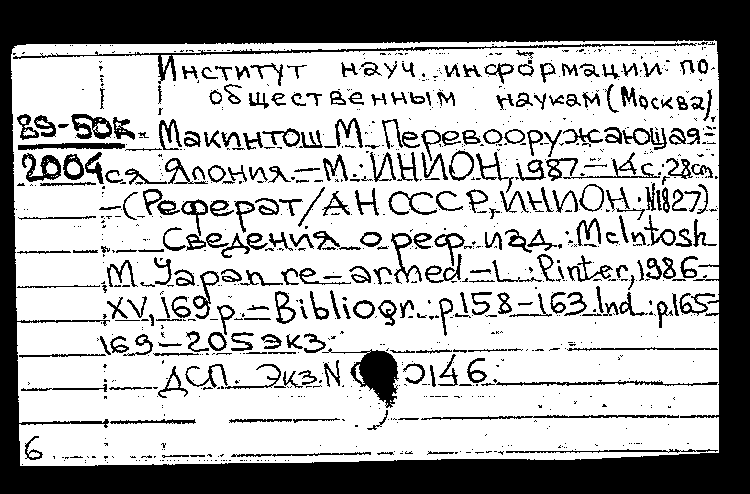 Институт науч. информации по
общественным наукам (Москва)
89-50К. Макинтош М. Перевооружающая-
2004 ся Япония. — М.: ИНИОН, 1987. — 14 с, 28 cm
— (Реферат/АН СССР, ИНИОН; N1827)
Сведения о реф. изд.: McIntosh
M. Japan re-armed. — L.: Pinter, 1986. —
XV, 169 p. — Bibliogr.: p.158-163. Ind.: p.165-
169 — 205 экз.
ДСП. Экз. N 146.
6